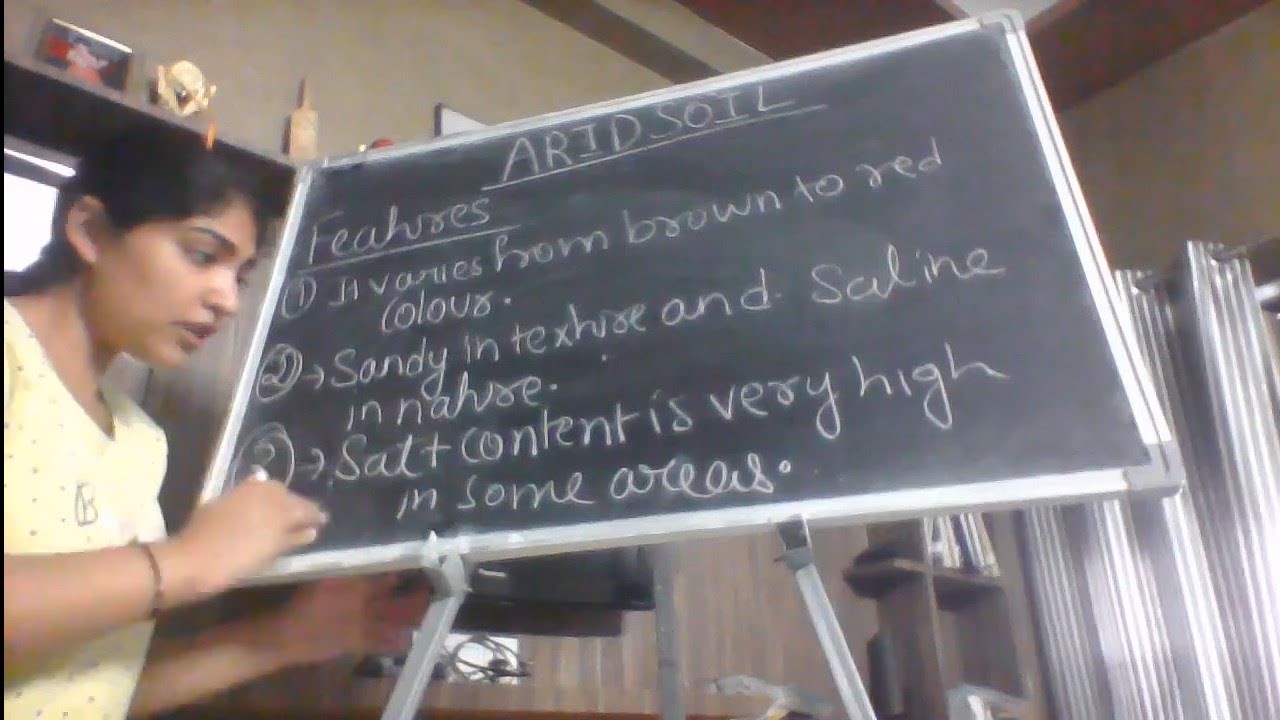 ARID SOIL
Features
① It varies from brown to red
colour.
② → Sandy in texture and Saline
in nature.
③ → Salt content is very high
in some areas.
B